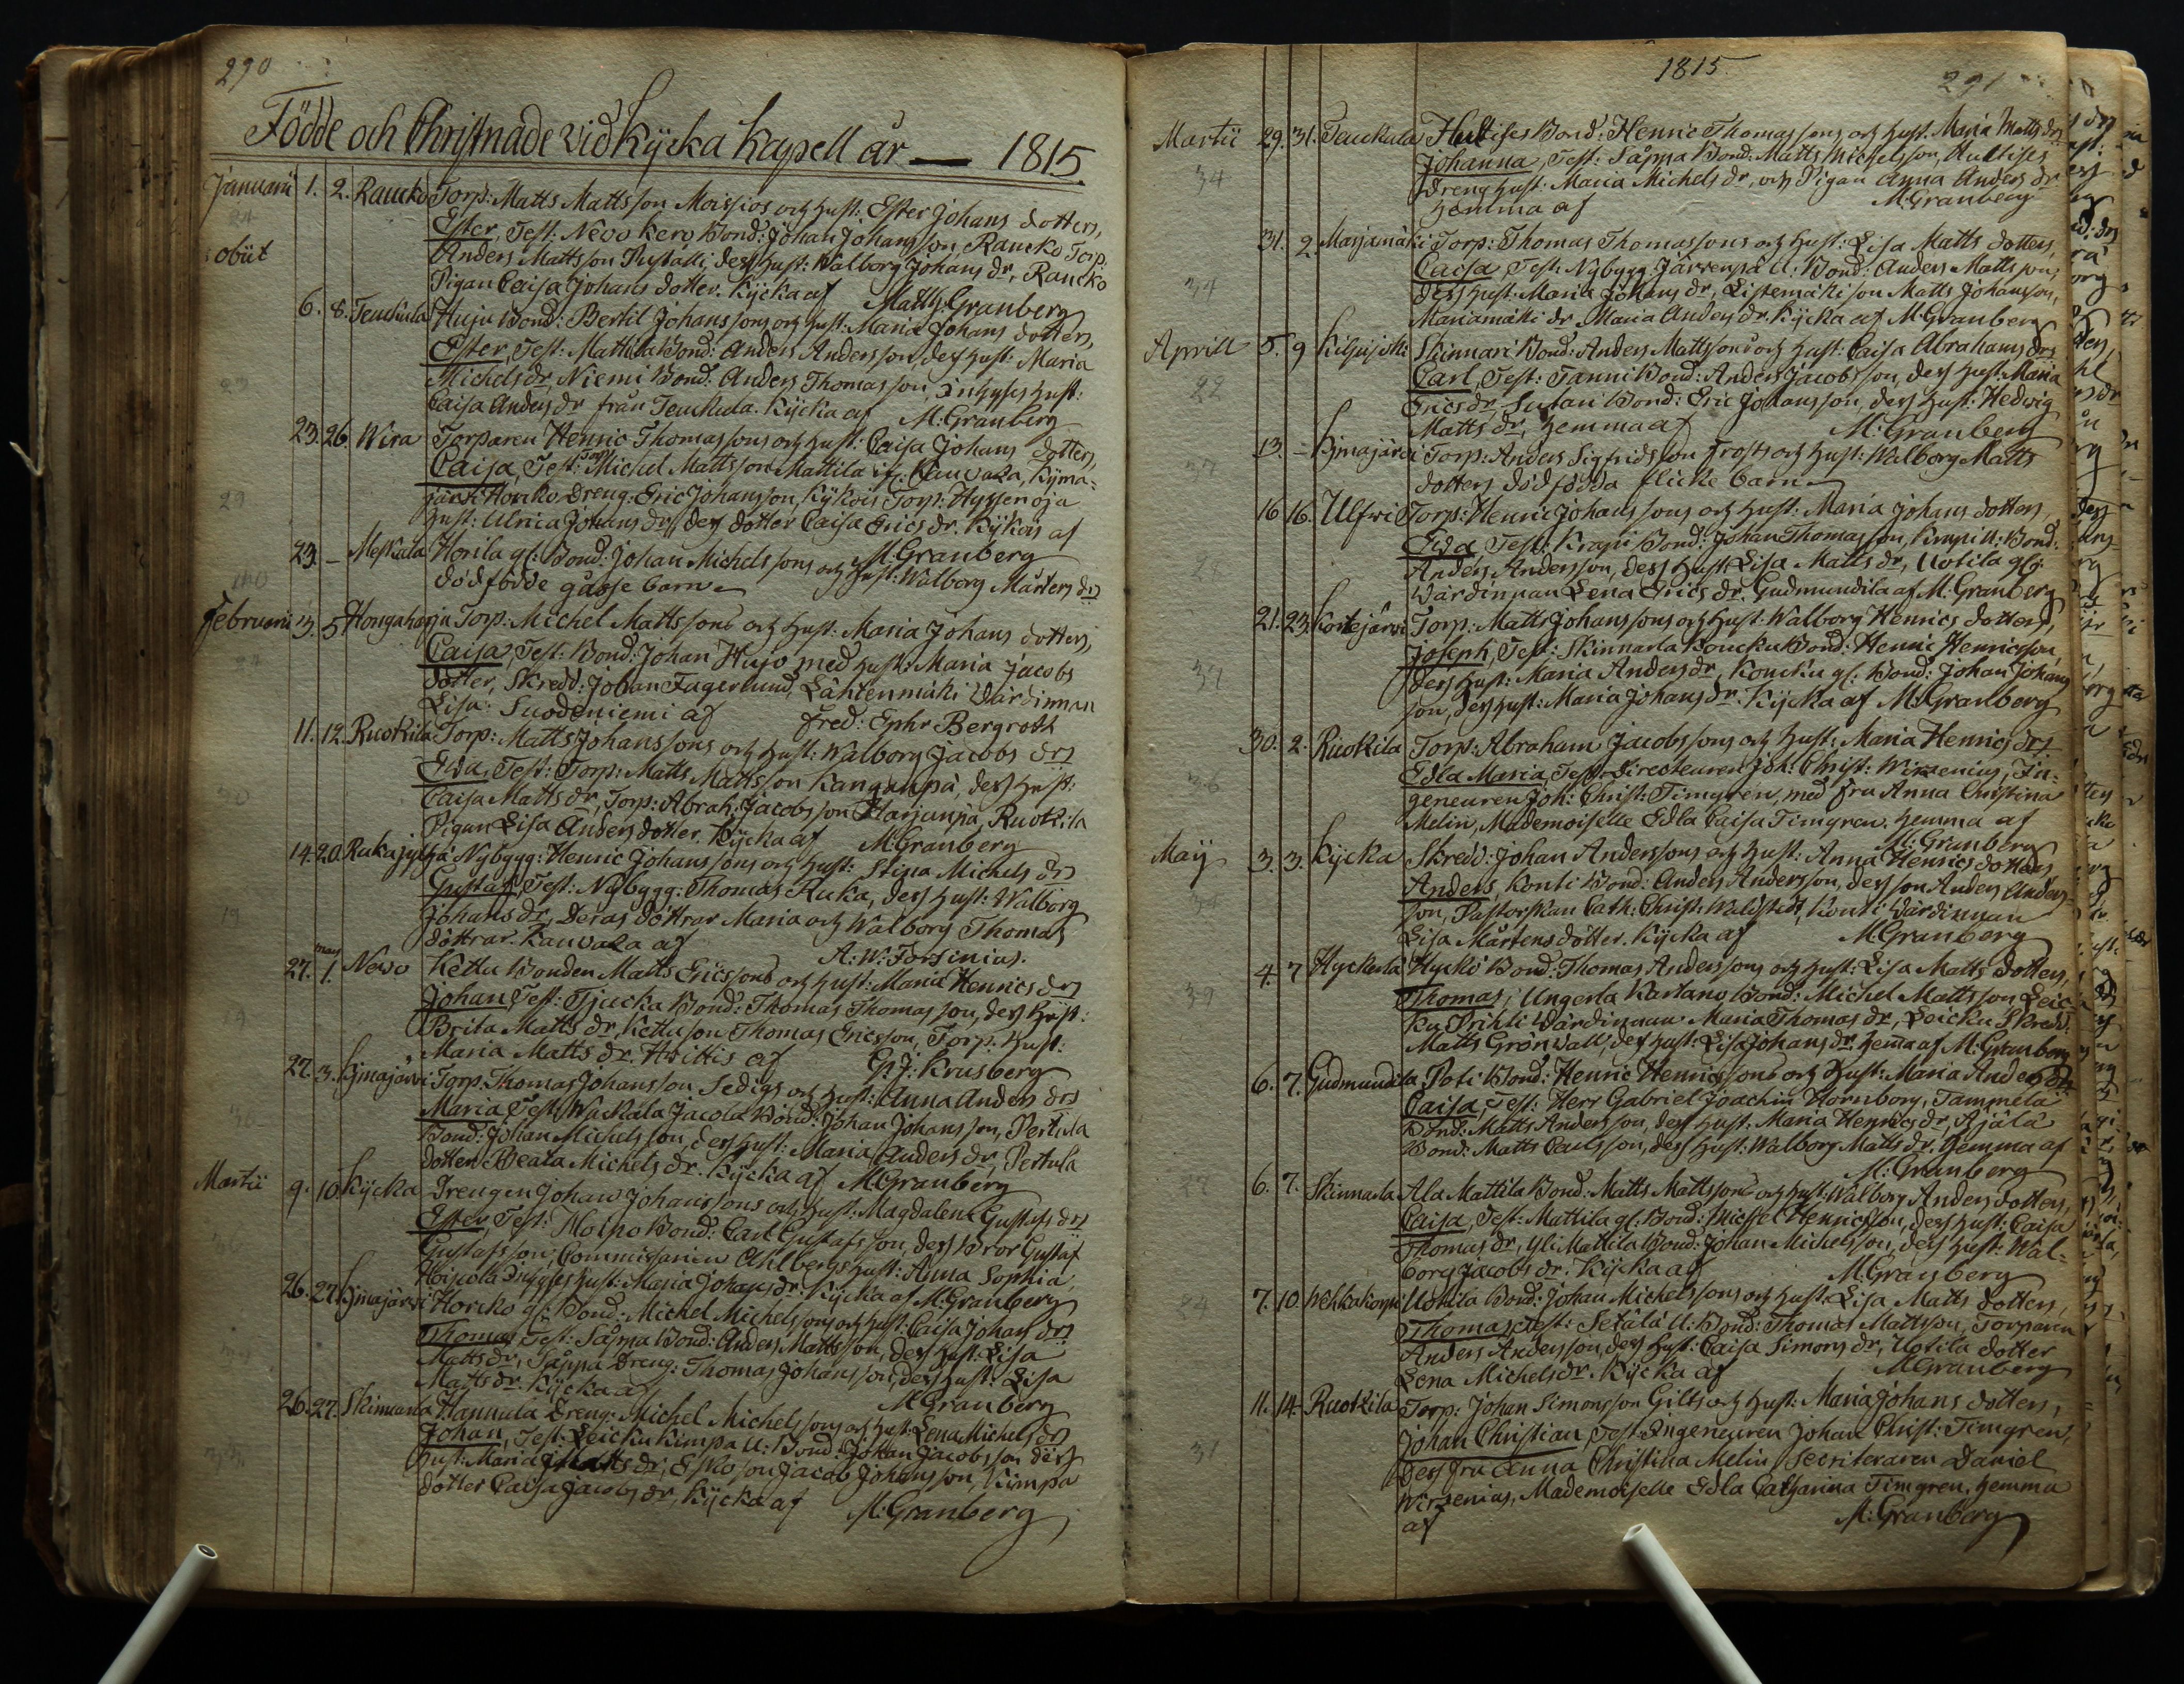 290
Födde och Christnade vid Kycka Kapell år — 1815.
Januarii 1. 2. Raucko Torp: Matts Mattsson Moisios och hust: Ester Johans dotters,
24 Ester, Test: Nevo Kero Bond: Johan Johansson, Raucko Torp.
obiit Anders Mattsson Pyställi, dess hust: Walborg Johans dr, Raucko
Pigan Caisa Johans dotter. Kycka af Matth: Granberg
6. 8. Teuckula Huju Bond: Bertil Johanssons och hust: Maria Johans dotters,
Ester, Test: Mattila Bond: Anders Andersson, dess hust: Maria
23 Michels dr, Niemi Bond: Anders Thomasson, Inhyses hust:
Caisa Anders dr från Teuckula. Kycka af M: Granberg
23. 26. Wira Torparen Henric Thomassons och hust: Caisa Johans dotters,
Caisa, Test: Michel Mattsson Mattila if: Kauvaza, Kyma-
29 järvi Horcko Dreng: Eric Johansson, Kykois Torp: Hyssenoja
hust: Ulrica Johans dr, dess dotter Caisa Erics dr. Kykois af
M: Granberg
23. – Meskala Horila gl: Bond: Johan Michelssons och hust: Walborg Mårtens drs
40 dödfödde gåsse barn
Februarii 3. 5 Hongaharju Torp: Michel Mattssons och hust: Maria Johans dotters,
Caisa, Test: Bond: Johan Hujo med hust: Maria Jacobs
dotter, Skredd: Johan Fagerlund, Lähtenmäki Värdinnan
Lisa: Suodeniemi af Fred: Ephr Bergroth
11. 12. Ruokila Torp: Matts Johanssons och hust: Walborg Jacobs drs
Edla, Test: Torp: Matts Mattsson Kanganpä, dess hust:
30 Caisa Matts dr, Torp: Abrah: Jacobsson Harjunpä, Ruokila
Pigan Lisa Anders dotter. Kycka af M: Granberg
14. 20. Rukajylhä Nybygg: Henric Johanssons och hust: Stina Michels drs
Gustaf, Test: Nybygg: Thomas Ruka, dess hust: Walborg
19 Johans dr, Deras döttrar Maria och Walborg Thomas
döttrar. Kauvaza af A: W: Forsinius.
27. mars 1. Nevo Kettu Bonden Matts Ericssons och hust: Maria Henrics drs
Johan, Test: Tjucka Bond: Thomas Thomasson, dess hust:
Brita Matts dr, Kettu son Thomas Ericsson, Torp: hust:
Maria Matts dr. Hvittis af G: J: Krusberg
27. 3. Kymajärvi Torp: Thomas Johansson Sedigs och hust: Anna Anders drs
Maria, Test: Wackala Jacola Bond: Johan Johansson, Pertula
Bond: Johan Michelsson, dess hust: Maria Anders dr, Pertula
dotter Beata Michels dr. Kycka af M: Granberg
Martii 9. 10. Kycka Drengen Johan Johanssons och hust: Magdalena Gustafs drs
Ester, Test: Moiho Bond: Carl Gustafsson, dess Bror Gustaf
Gustafsson, Commissarien Ahlbergs hust: Anna Sophia,
Hoipola Inhyses hust: Maria Johans dr. Kycka af M: Granberg
26. 27. Kymajärvi Horcko gl: Bond: Michel Michelssons och hust: Caisa Johans drs
Thomas, Test: Säppä Bond: Anders Mattsson, dess hust: Lisa
Matts dr, Säppä Dreng: Thomas Johansson, dess hust: Lisa
Matts dr. Kycka af M: Granberg
26. 27. Skinnarla Hannula Dreng: Michel Michelssons och hust: Lena Michels drs
Johan, Test: Leicku Kimpa U: Bond: Johan Jacobsson dess
hust: Maria Matts dr, Esko son Jacob Johansson, Kimpa
dotter Caisa Jacobs dr, Kycka af M: Granberg
1815.
291
Martii 29. 31. Teuckula Hultises Bond: Henric Thomassons och hust: Maria Matts drs
34 Johanna, Test: Säppä Bond: Matts Michelsson, Hultises
Dreng hust: Maria Michels dr, och Pigan Anna Anders dr
hemma af M: Granberg
31. 2. Marjamäki Torp: Thomas Thomassons och hust: Lisa Matts dotters,
34 Caisa, Test: Nybygg: Järvenpä U: Bond: Anders Mattsson,
dess hust: Maria Johans dr, Listemäki son Matts Johansson,
Mariamäki dr Maria Anders dr. Kycka af M: Granberg
Aprill 5. 9 Kiljuijoki Skinnari Bond: Anders Mattssons och hust: Caisa Abrahams drs
22 Carl, Test: Tanni Bond: Anders Jacobsson, dess hust: Maria
Erics dr, Sutari Bond: Eric Johansson, dess hust: Hedwig
Matts dr, hemma af M: Granberg
13. – Kymajärvi Torp: Anders Sigfridsson Frosts och hust: Walborg Matts
dotters dödfödda flicke barn
16 16. Ulfvi Torp: Henric Johanssons och hust: Maria Johans dotters,
Edla, Test: Krapi Bond: Johan Thomasson, Krapi U: Bond:
Anders Andersson, dess hust: Lisa Matts dr, Uotila gl:
Värdinnan Lena Erics dr. Gudmundila af M: Granberg
21. 23. Kortejärvi Torp: Matts Johanssons och hust: Walborg Henrics dotters,
Joseph, Test: Skinnarla Koucku Bond: Henric Henricsson,
dess hust: Maria Anders dr, Koucku gl: Bond: Johan Johans
son, dess hust: Maria Johans dr. Kycka af M: Granberg
30. 2. Ruokila Torp: Abraham Jacobssons och hust: Maria Henrics drs
36 Edla Maria, Test: Directeuren Joh: Christ: Wirzenius, In-
geneuren Joh: Christ: Timgren, med fru Anna Christina
Melin, Mademoiselle Edla Caisa Timgren. hemma af
M: Granberg
Maji 3. 3. Kycka Skredd: Johan Anderssons och hust: Anna Henrics dotters
Anders, Konti Bond: Anders Andersson, dess son Anders Anders-
son, Pastorskan Cath: Christ: Wallstedt, Konti Värdinnan
Lisa Mårtens dotter. Kycka af M: Granberg
4. 7 Hyckerlä Hyckö Bond: Thomas Anderssons och hust: Lisa Matts dotters,
39 Thomas, Ungerla Kartano Bond: Michel Mattsson Leic-
ku Prihti Värdinnan Maria Thomas dr, Leicku Skredd.
Matts Grönwall, dess hust: Lisa Johans dr. hema af M: Granberg
6. 7. Gudmundila Poti Bond: Henric Henricssons och hust: Maria Anders drs
Caisa, Test: Herr Gabriel Joachim Hornborg, Tammela
Bond: Matts Andersson, dess hust: Maria Henrics dr, Äjälä
Bond: Matts Paulsson, dess hust: Walborg Matts dr. hemma af
M: Granberg
6. 7. Skinnarla Ala Mattila Bond: Matts Mattssons och hust: Walborg Anders dotters,
27 Caisa, Test: Mattila gl: Bond: Michel Henricsson, dess hust: Caisa
Thomas dr, Yli Mattila Bond: Johan Michelsson, dess hust: Wal-
borg Jacobs dr: Kycka af M: Granberg
7. 10. Wehkakorpi Uotila Bond: Johan Michelssons och hust: Lisa Matts dotters,
24 Thomas, Test: Setälä U: Bond: Thomas Mattsson, Torparen
Anders Andersson, dess hust: Caisa Simons dr, Uotila dotter
Lena Michels dr. Kycka af M: Granberg
11. 14. Ruokila Torp: Johan Simonsson Gilts och hust: Maria Johans dotters,
31 Johan Christian, Test: Ingeneuren Johan Christ: Timgren,
dess fru Anna Christina Melin, Secriteraren Daniel
Wirzenius, Mademoiselle Edla Catharina Timgren, hemma
af M: Granberg